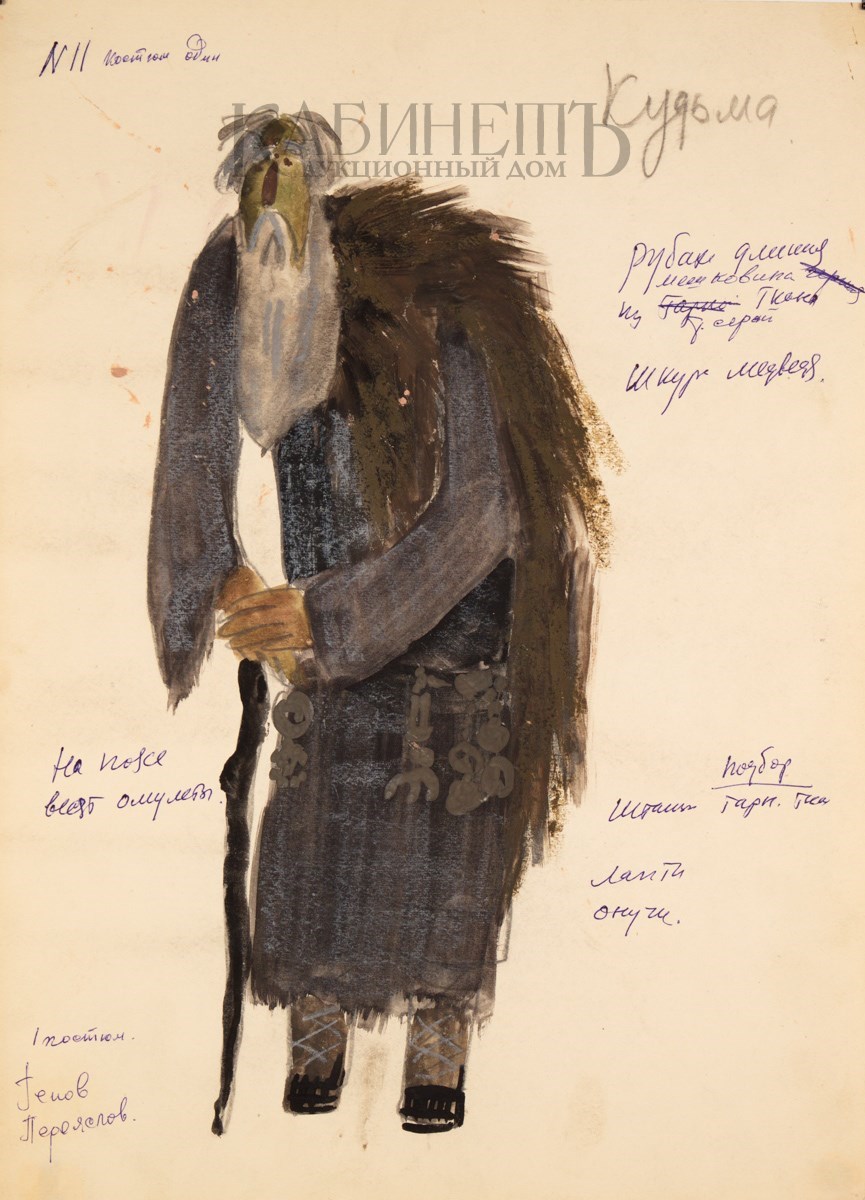 N 11 костюм один
Кудьма
КАБИНЕТЪ
АУКЦИОННЫЙ ДОМ
Рубаж длиная
мешковина
из Ткани
т. серой
Шкура медведя.
На поясе
весят омулеты.
подбор
Штаны гарн. тка
Лапти
онучи.
1 костюм.
Переяслов.